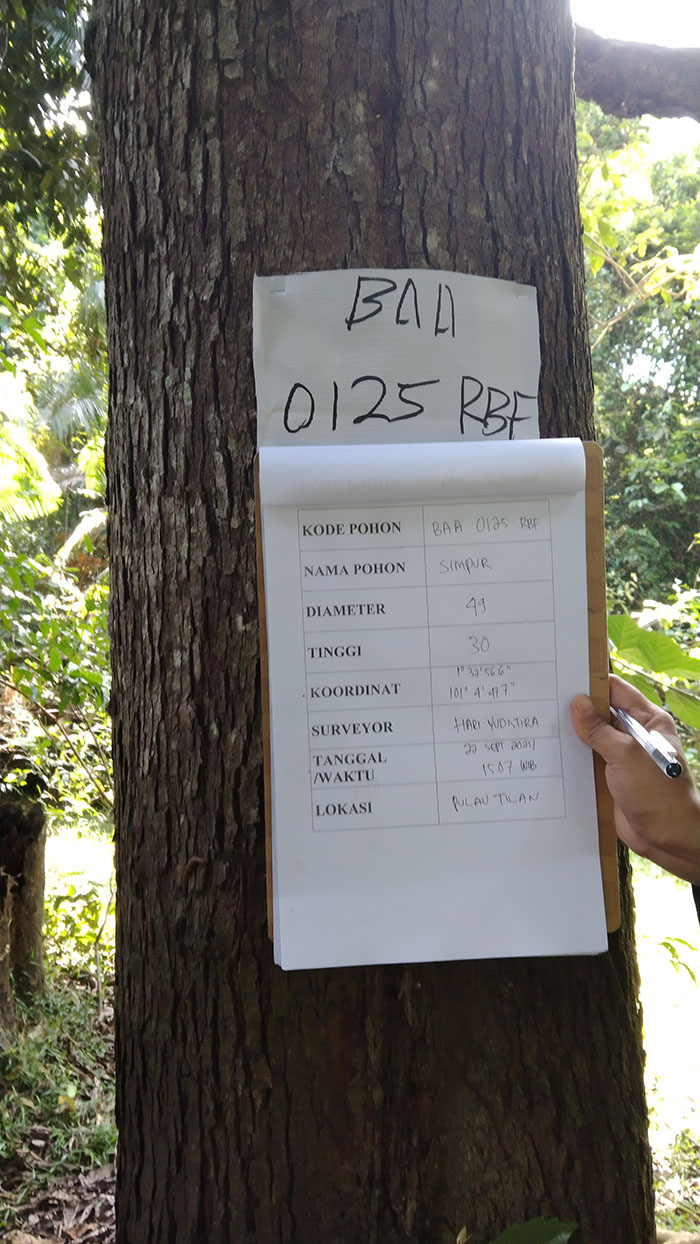 BAA
0125 RBF
KODE POHON BAA 0125 RBF
NAMA POHON SIMPUR
DIAMETER 49
TINGGI 30
KOORDINAT 1° 32' 56.6"
101° 4' 47.7"
SURVEYOR HARI YUDISTIRA
TANGGAL 22 SEPT 2021/
/WAKTU 15.07 WIB
LOKASI PULAU TILAN